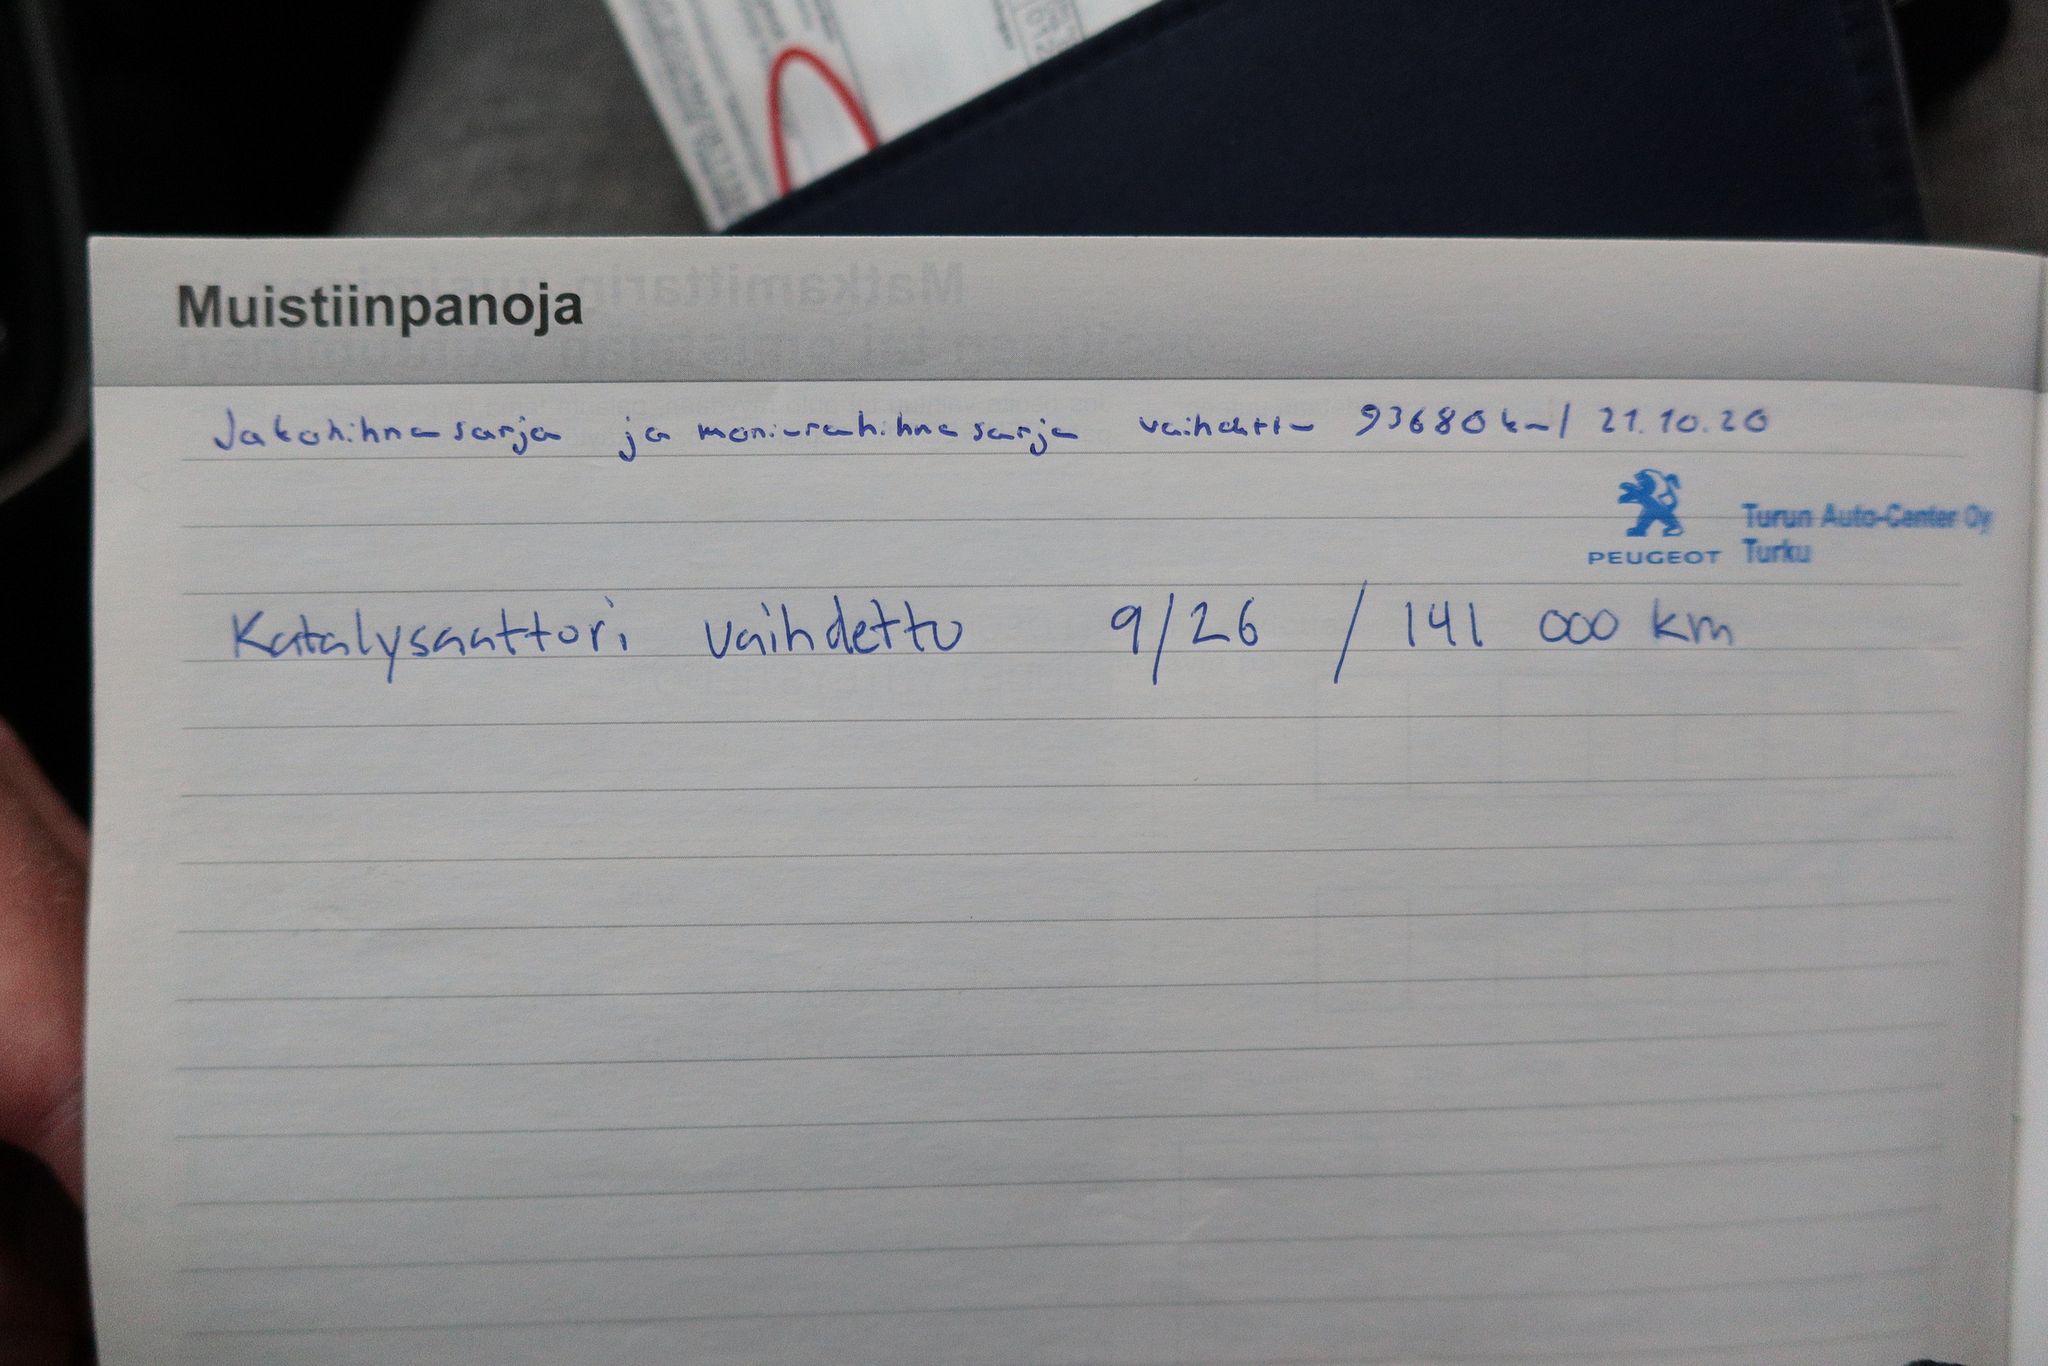 Muistiinpanoja
Jakohihnasarja ja moniurahihnasarja vaihdettu 93680km/ 21.10.20
PEUGEOT
Turun Auto-Center Oy
Turku
Katalysaattori vaihdettu 9/26 / 141 000 km